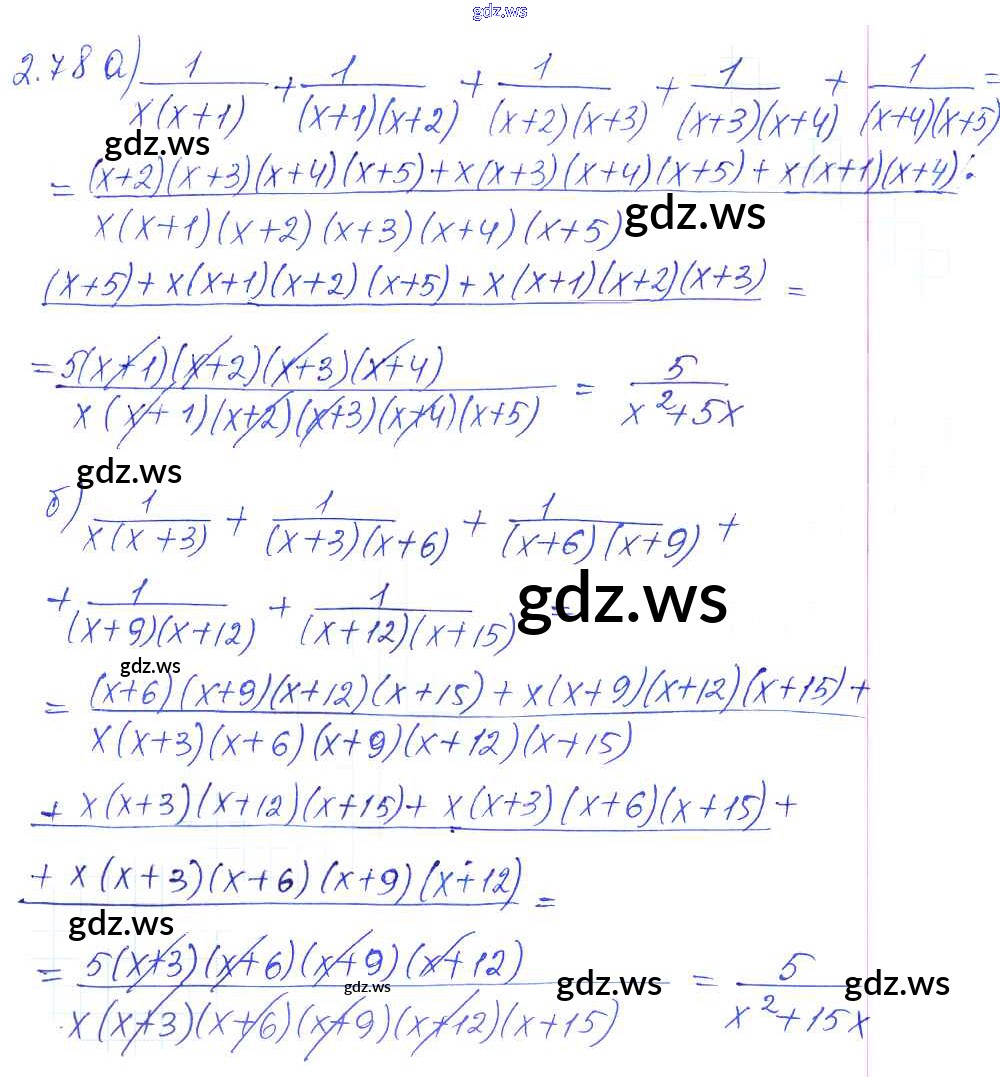 gdz.ws
2.78 а) 1/(x(x+1)) + 1/((x+1)(x+2)) + 1/((x+2)(x+3)) + 1/((x+3)(x+4)) + 1/((x+4)(x+5)) =
gdz.ws
= (x+2)(x+3)(x+4)(x+5)+x(x+3)(x+4)(x+5)+x(x+1)(x+4):
x(x+1)(x+2)(x+3)(x+4)(x+5) gdz.ws
(x+5)+x(x+1)(x+2)(x+5)+x(x+1)(x+2)(x+3) =
= 5(x+1)(x+2)(x+3)(x+4)/(x(x+1)(x+2)(x+3)(x+4)(x+5)) = 5/(x²+5x)
gdz.ws
б) 1/(x(x+3)) + 1/((x+3)(x+6)) + 1/((x+6)(x+9)) +
+ 1/((x+9)(x+12)) + 1/((x+12)(x+15)) = gdz.ws
gdz.ws
= (x+6)(x+9)(x+12)(x+15)+x(x+9)(x+12)(x+15)+
x(x+3)(x+6)(x+9)(x+12)(x+15)
+ x(x+3)(x+12)(x+15)+x(x+3)(x+6)(x+15)+
+ x(x+3)(x+6)(x+9)(x+12) =
gdz.ws
= 5(x+3)(x+6)(x+9)(x+12)/(x(x+3)(x+6)(x+9)(x+12)(x+15)) = 5/(x²+15x)
gdz.ws gdz.ws gdz.ws